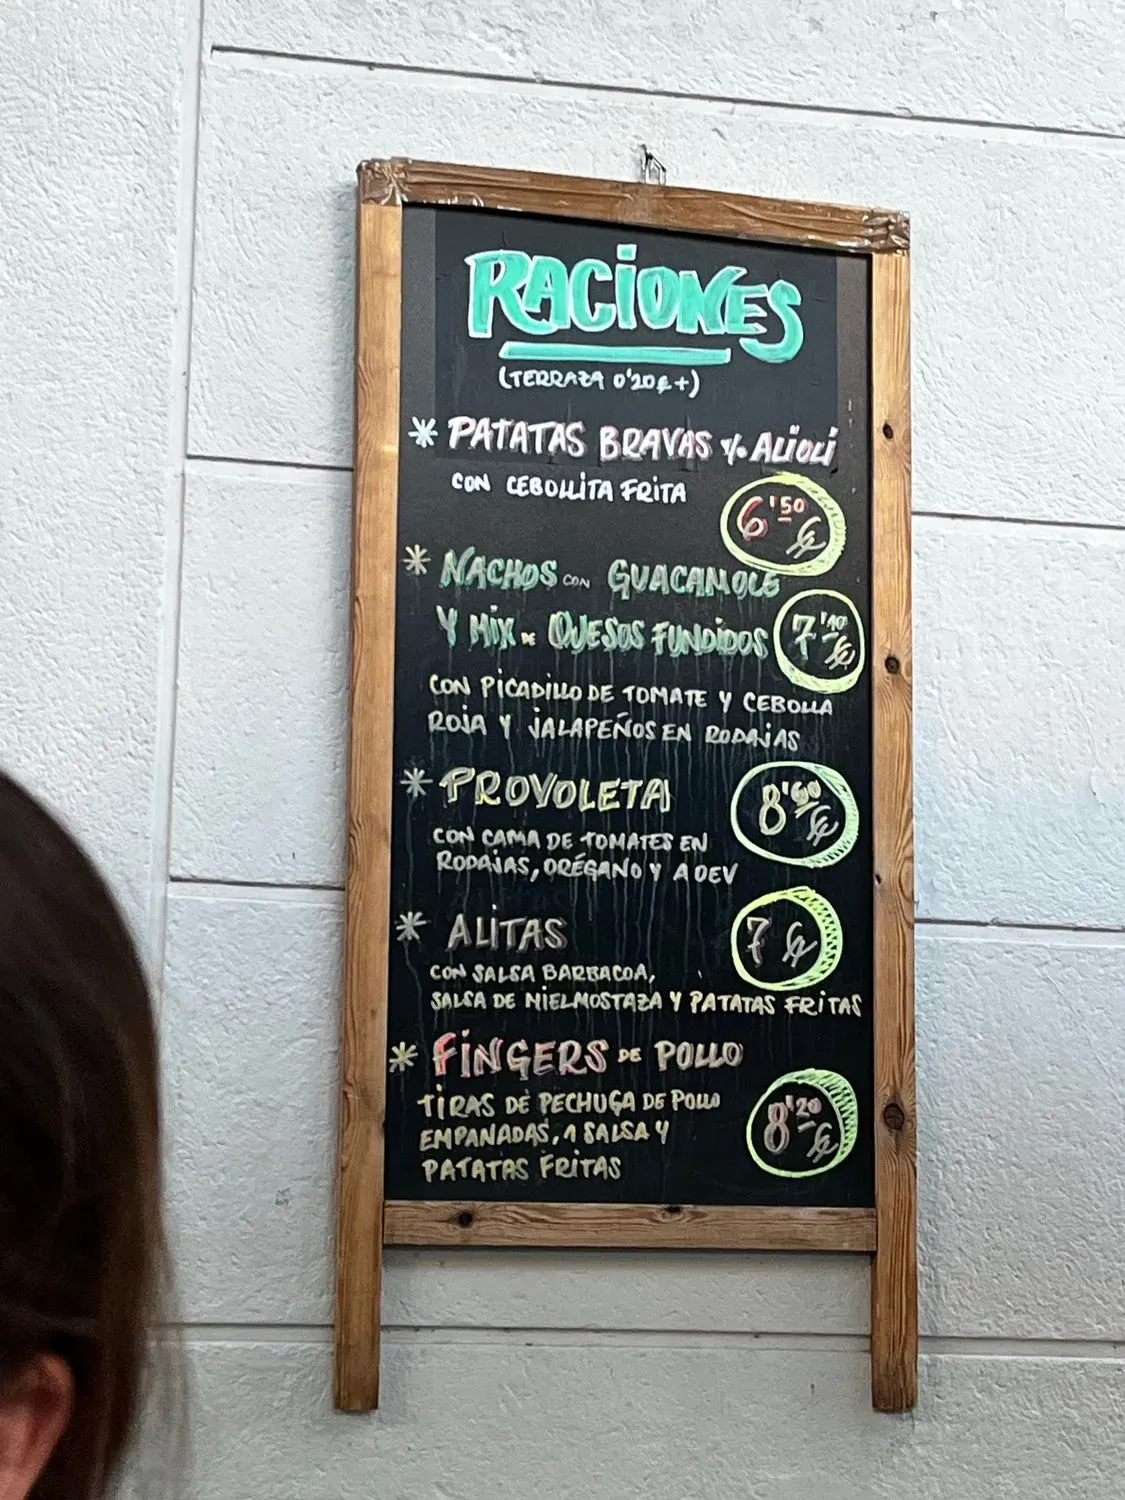 RACIONES
(TERRAZA 0'20€+)
* PATATAS BRAVAS y/o ALIOLI
CON CEBOLLITA FRITA
6'50 €
* NACHOS CON GUACAMOLE
Y MIX DE QUESOS FUNDIDOS
7'40 €
CON PICADILLO DE TOMATE Y CEBOLLA
ROJA Y JALAPEÑOS EN RODAJAS
* PROVOLETA
8'60 €
CON CAMA DE TOMATES EN
RODAJAS, ORÉGANO Y AOEV
* ALITAS
7 €
CON SALSA BARBACOA,
SALSA DE MIELMOSTAZA Y PATATAS FRITAS
* FINGERS DE POLLO
TIRAS DE PECHUGA DE POLLO
EMPANADAS, 1 SALSA Y
PATATAS FRITAS
8'20 €